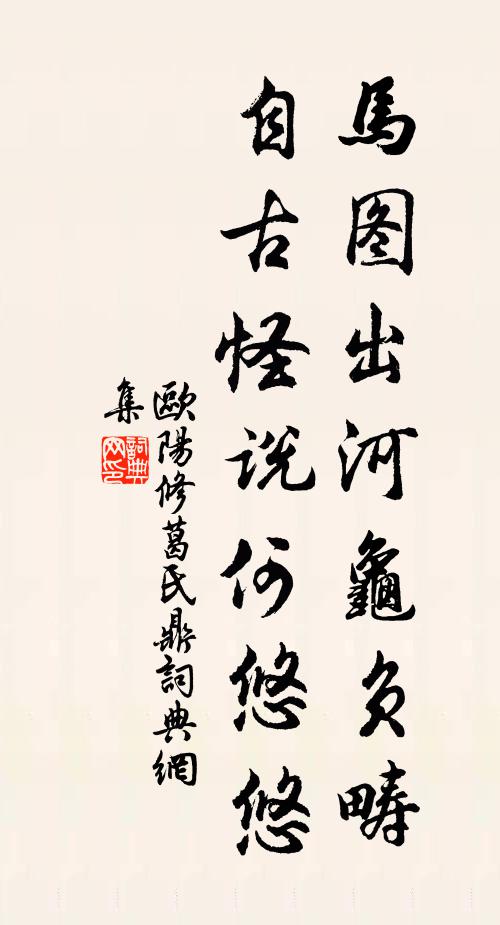 馬图出河龜负疇
自古怪说何悠悠
歐陽修葛氏鼎詞典網
集
詞典
网印